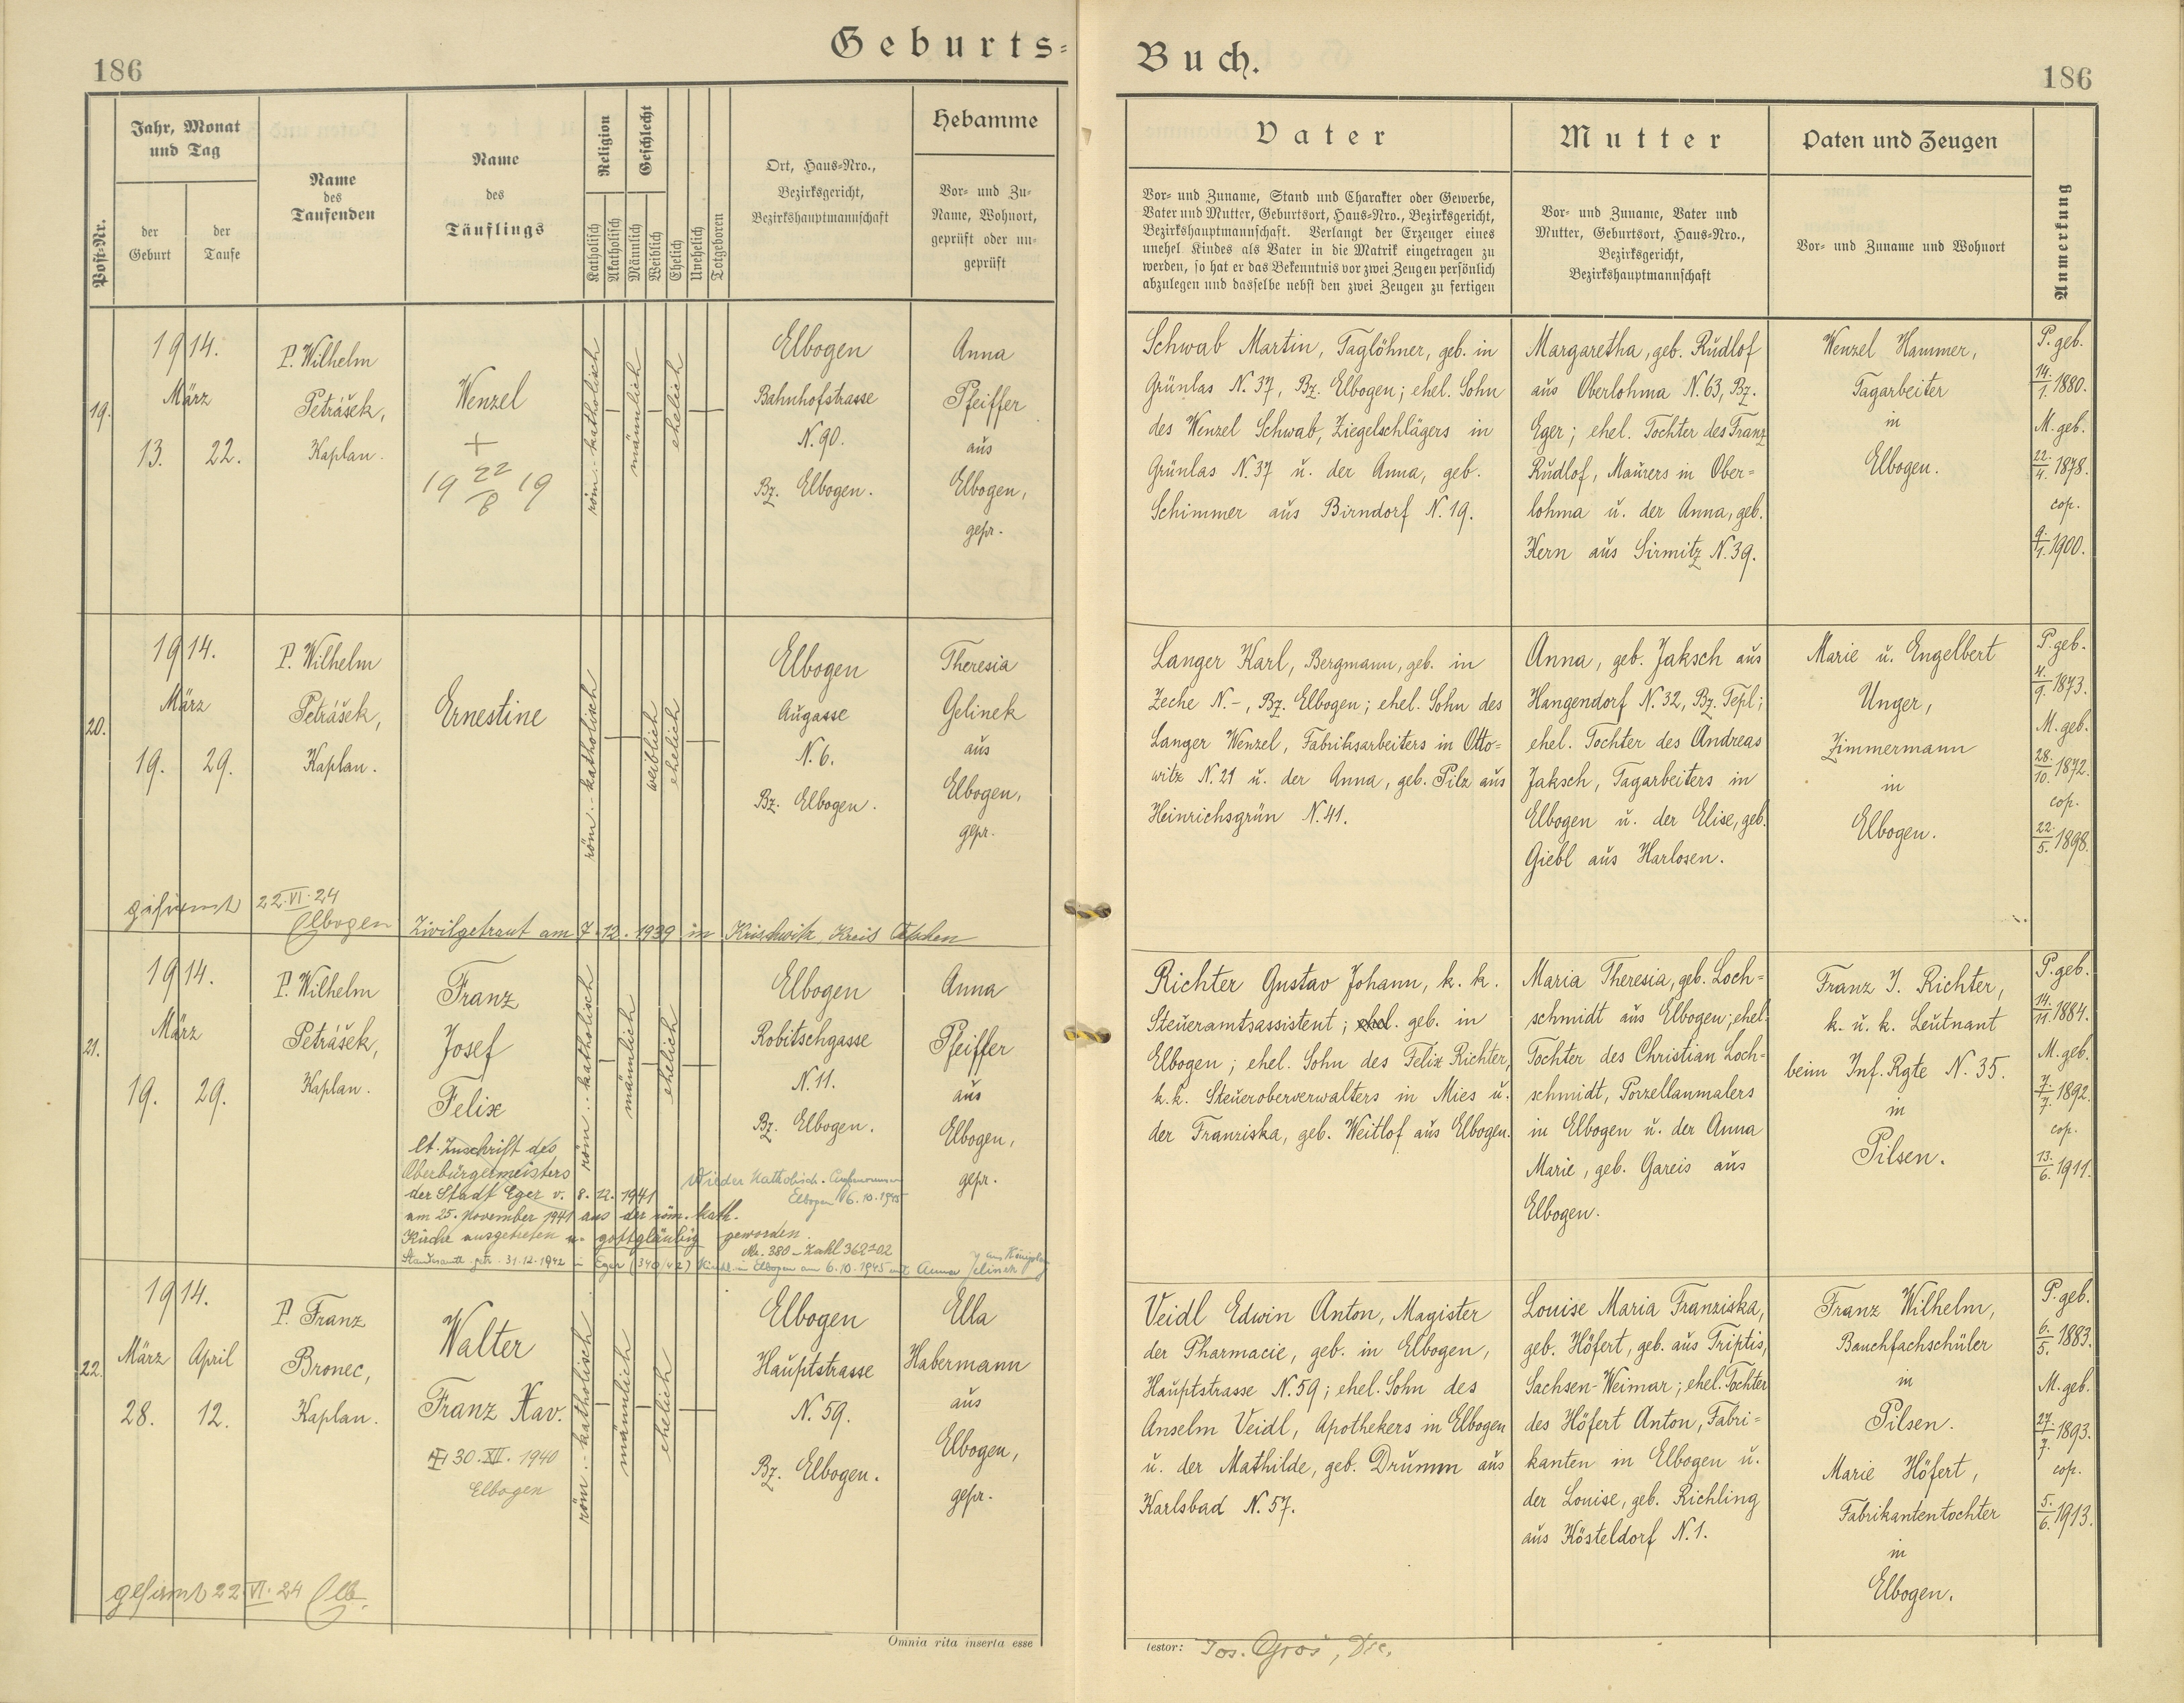 Geburts=
Buch.
186
186
Post=Nr.
Jahr, Monat
und Tag
der
Geburt
der
Taufe
Name
des
Taufenden
Name
des
Täuflings
Religion
Katholisch
Akatholisch
Geschlecht
Männlich
Weiblich
Ehelich
Unehelich
Totgeboren
Ort, Haus=Nro.,
Bezirksgericht,
Bezirkshauptmannschaft
Hebamme
Vor= und Zu=
Name, Wohnort,
geprüft oder un=
geprüft
Vater
Vor= und Zuname, Stand und Charakter oder Gewerbe,
Vater und Mutter, Geburtsort, Haus=Nro., Bezirksgericht,
Bezirkshauptmannschaft. Verlangt der Erzeuger eines
unehel Kindes als Vater in die Matrik eingetragen zu
werden, so hat er das Bekenntnis vor zwei Zeugen persönlich
abzulegen und dasselbe nebst den zwei Zeugen zu fertigen
Mutter
Vor= und Zuname, Vater und
Mutter, Geburtsort, Haus=Nro.,
Bezirksgericht,
Bezirkshauptmannschaft
Paten und Zeugen
Vor= und Zuname und Wohnort
Anmerkung
19.
1914.
März
13. 22.
P. Wilhelm
Petrášek,
Kaplan.
Wenzel
+
19 22/8 19
röm.-katholisch
männlich
ehelich
Elbogen
Bahnhofstrasse
N. 90.
Bz. Elbogen.
Anna
Pfeiffer
aus
Elbogen,
gepr.
Schwab Martin, Taglöhner, geb. in
Grünlas N. 37, Bz. Elbogen; ehel. Sohn
des Wenzel Schwab, Ziegelschlägers in
Grünlas N. 37 u. der Anna, geb.
Schimmer aus Birndorf N. 19.
Margaretha, geb. Rudlof
aus Oberlohma N. 63, Bz.
Eger; ehel. Tochter des Franz
Rudlof, Maurers in Ober=
lohma u. der Anna, geb.
Kern aus Sirmitz N. 39.
Wenzel Hammer,
Tagarbeiter
in
Elbogen.
P. geb.
14./1. 1880.
M. geb.
22./4. 1878.
cop.
9./1. 1900.
20.
1914.
März
19. 29.
P. Wilhelm
Petrášek,
Kaplan.
Ernestine
röm.-katholisch
weiblich
ehelich
Elbogen
Augasse
N. 6.
Bz. Elbogen.
Theresia
Gelinek
aus
Elbogen,
gepr.
Langer Karl, Bergmann, geb. in
Zeche N. -, Bz. Elbogen; ehel. Sohn des
Langer Wenzel, Fabriksarbeiters in Otto=
witz N. 21 u. der Anna, geb. Pilz aus
Heinrichsgrün N. 41.
Anna, geb. Jaksch aus
Hangendorf N. 32, Bz. Tepl;
ehel. Tochter des Andreas
Jaksch, Tagarbeiters in
Elbogen u. der Elise, geb.
Giebl aus Harlosen.
Marie u. Engelbert
Unger,
Zimmermann
in
Elbogen.
P. geb.
4./9. 1873.
M. geb.
28./10. 1872.
cop.
22./5. 1898.
gefirmt 22.VI.24
Elbogen
Zivilgetraut am 7.12.1939 in Krischwitz, Kreis Tetschen
21.
1914.
März
19. 29.
P. Wilhelm
Petrášek,
Kaplan.
Franz
Josef
Felix
röm.-katholisch
männlich
ehelich
Elbogen
Robitschgasse
N. 11.
Bz. Elbogen.
Anna
Pfeiffer
aus
Elbogen,
gepr.
lt. Zuschrift des
Oberbürgermeisters
der Stadt Eger v. 8.12.1941
am 25. November 1941 aus der röm. kath.
Kirche ausgetreten u. gottgläubig geworden.
Wieder Katholisch.
Elbogen 6.10.1945
Standesamtl. getr. 31.12.1942 in Eger (340/42) Kirchl. in Elbogen am 6.10.1945 mit Anna Jelinek
Richter Gustav Johann, k. k.
Steueramtsassistent; ehel. geb. in
Elbogen; ehel. Sohn des Felix Richter,
k. k. Steueroberverwalters in Mies u.
der Franziska, geb. Weitlof aus Elbogen.
Maria Theresia, geb. Loch=
schmidt aus Elbogen; ehel.
Tochter des Christian Loch=
schmidt, Porzellanmalers
in Elbogen u. der Anna
Marie, geb. Gareis aus
Elbogen.
Franz J. Richter,
k. u. k. Leutnant
beim Inf. Rgte N. 35.
in
Pilsen.
P. geb.
14./11. 1884.
M. geb.
7./7. 1892.
cop.
13./6. 1911.
22.
1914.
März April
28. 12.
P. Franz
Bronec,
Kaplan.
Walter
Franz Xav.
30.XII.1940
Elbogen
röm.-katholisch
männlich
ehelich
Elbogen
Hauptstrasse
N. 59.
Bz. Elbogen.
Ella
Habermann
aus
Elbogen,
gepr.
Veidl Edwin Anton, Magister
der Pharmacie, geb. in Elbogen,
Hauptstrasse N. 59; ehel. Sohn des
Anselm Veidl, Apothekers in Elbogen
u. der Mathilde, geb. Drumm aus
Karlsbad N. 57.
Louise Maria Franziska,
geb. Höfert, geb. aus Triptis,
Sachsen-Weimar; ehel. Tochter
des Höfert Anton, Fabri=
kanten in Elbogen u.
der Louise, geb. Richling
aus Kösteldorf N. 1.
Franz Wilhelm,
Bauchfachschüler
in
Pilsen.
Marie Höfert,
Fabrikantentochter
in
Elbogen.
P. geb.
6./5. 1883.
M. geb.
27./7. 1893.
cop.
5./6. 1913.
gefirmt 22.VI.24 Elb.
Omnia rita inserta esse
testor: Jos. Groš, Dec.